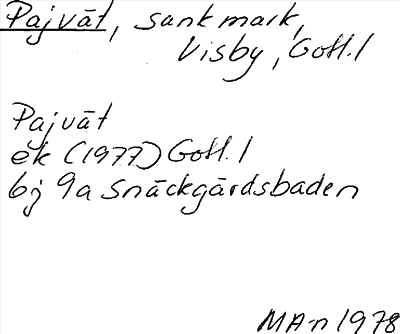 Pajvāt, sank mark,
Visby, Gotl. l
Pajvāt
ek (1977) Gotl. l
6j 9a Snäckgärdsbaden
MA-n 1978